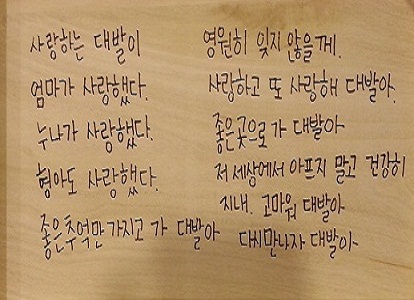 사랑하는 대발이
엄마가 사랑했다.
누나가 사랑했다.
형아도 사랑했다.
좋은추억만 가지고 가 대발아
영원히 잊지 않을께.
사랑하고 또 사랑해 대발아.
좋은곳으로 가 대발아
저 세상에서 아프지 말고 건강히
지내. 고마워 대발아
다시만나자 대발아